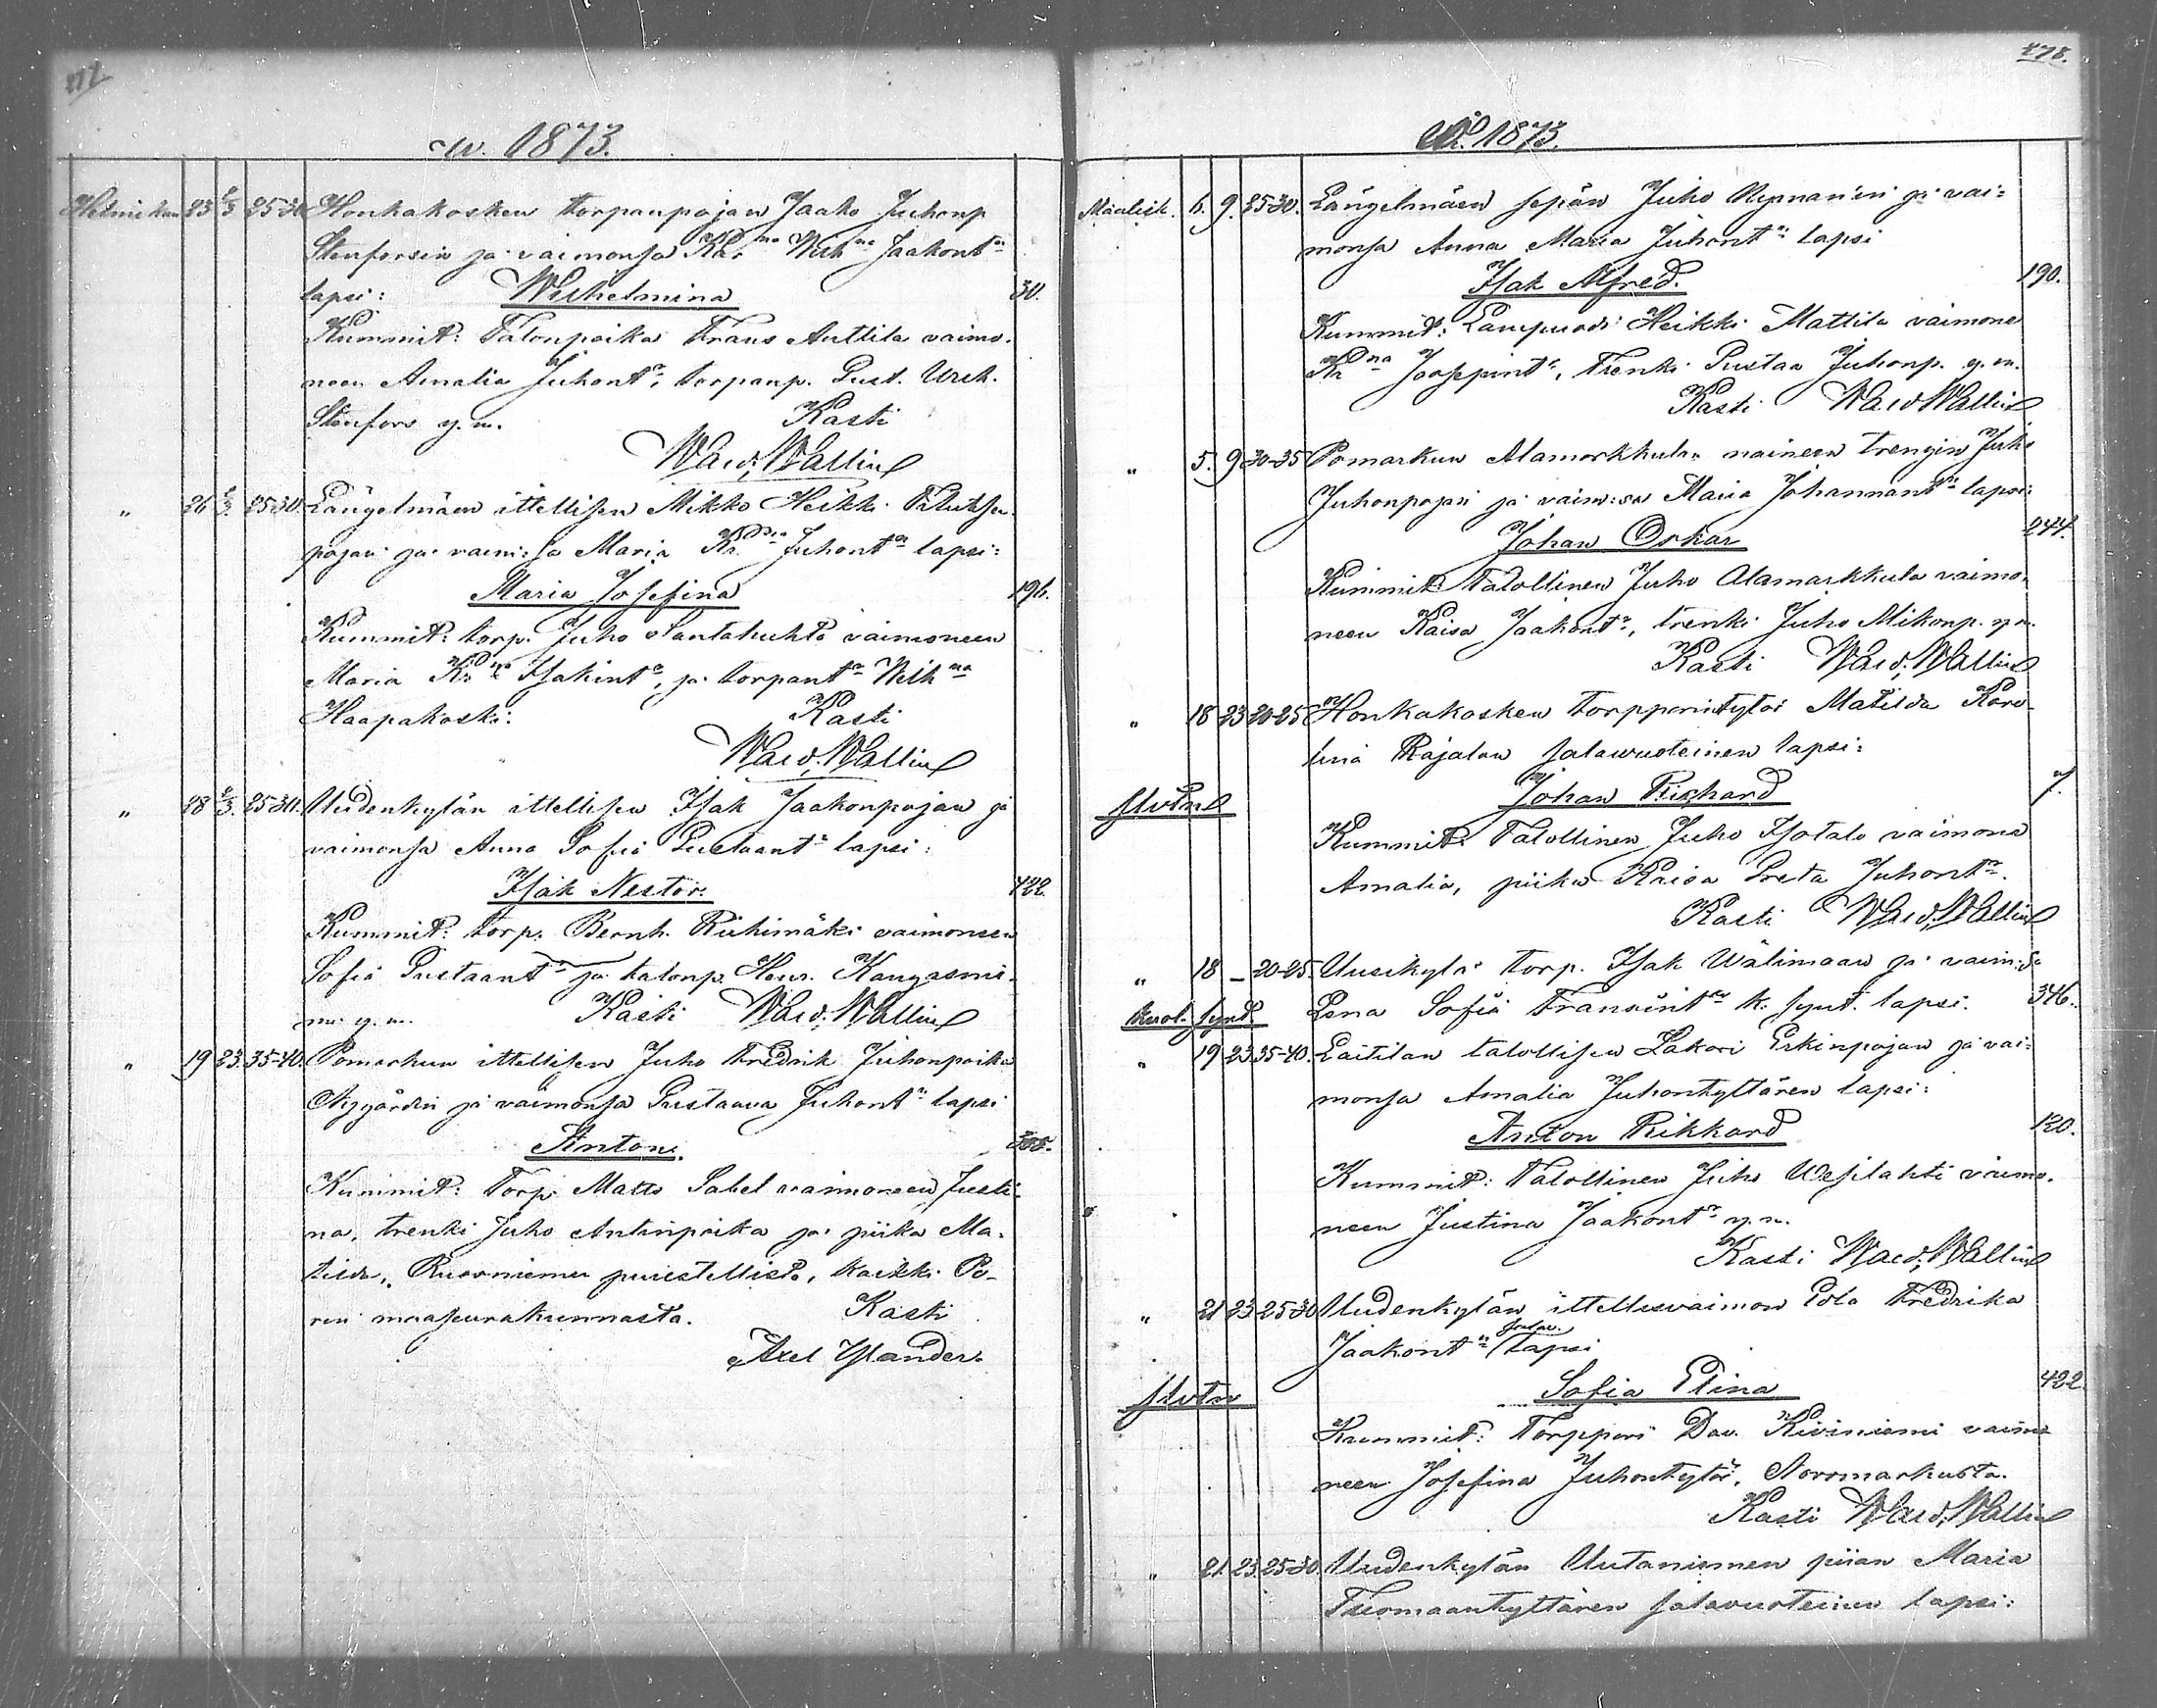 w. 1873.
Helmikuu 23 2/3 25-30 Honkakosken torpanpojan Jaako Juhonp
Stenforsin ja vaimonsa Kar Wilh na Jaakont
lapsi: Wilhelmina 30.
Kummit: Talonpoika Frans Anttila vaimo-
neen Amalia Juhont, torpanp. Gust. Wilh.
Stenfors y.m. Kasti
Wald. Wallin
" 26 2/3 25-30. Längelmäen ittellisen Mikko Heikki
pojan ja vaim:sa Maria Juhont lapsi:
Maria Josefina 196.
Kummit: torp. Juho Santahuhta vaimoneen
Maria Isakint, ja torpant Wilh na
Haapakoski. Kasti
Wald. Wallin
" 28 2/3. 25-30. Uudenkylän ittellisen Isak Jaakonpojan ja
vaimonsa Anna Sofia Gustaant lapsi:
Isak Nestor. 422.
Kummit: torp. Bernh. Riihimäki vaimoneen
Sofia Gustaant ja talonp. Henr. Kangasnie-
mi y.m. Kasti Wald. Wallin
" 19 23. 35-40. Pomarkun ittellisen Juho Fredrik Juhonpoika
Nygårdin ja vaimonsa Gustaava Juhont lapsi
Anton.
Kummit: Torp. Matts Sabel vaimoneen Justi-
na, trenki Juho Antinpoika ja piika Ma-
tilda, Ruosniemen puustellista, kaikki Po-
rin maaseurakunnasta. Kasti
Axel Ylander.
478.
1873.
Maalisk. 6. 9. 25-30. Längelmäen sepän Juho Nymanin ja vai-
monsa Anna Maria Juhont lapsi
Isak Alfred. 190.
Kummit: Lampuodi Heikki Mattila vaimone
Joosepint, Trenki Gustaa Juhonp. y.m.
Kasti Wald Wallin
" 5. 9 30-35 Pomarkun Alamarkkulan naineen trengin Juho
Juhonpojan ja vaim:sa Maria Johannant lapsi:
Johan Oskar 244.
Kummit Talollinen Juho Alamarkkula vaimo-
neen Kaisa Jaakont, trenki Juho Mikonp. y.m.
Kasti Wald. Wallin
" 18 23 20-25 Honkakosken torpparintytär Matilda Karo-
lina Rajalan salawuoteinen lapsi:
Johan Rikhard 7.
Kummit Talollinen Juho Isotalo vaimone
Amalia, piika Kaisa Greta Juhont.
Kasti Wald. Wallin
" 18 – 20-25. Uusikylä torp. Isak Wälimaan ja vaim:sa
kuol. synt. Lena Sofia Fransint k. synt. lapsi. 346.
" 19 23 35-40. Laitilan talollisen Sakari Erkinpojan ja vai-
monsa Amalia Juhontyttären lapsi:
Anton Rikkard 120.
Kummit: Talollinen Juho Wesilahti vaimo-
neen Justina Jaakont y.m.
Kasti Wald. Wallin
" 21 23 25-30 Uudenkylän ittellisvaimon Fredrika
Jaakont salav. lapsi
Sofia Elina 422.
Kummit: Torppari Dav. Kiviniemi vaimo
neen Josefina Juhontytär, Norrmarkusta.
Kasti Wald. Wallin
" 21. 23. 25-30. Uudenkylän Uutaniemen piian Maria
Tuomaantyttären salavuoteinen lapsi: